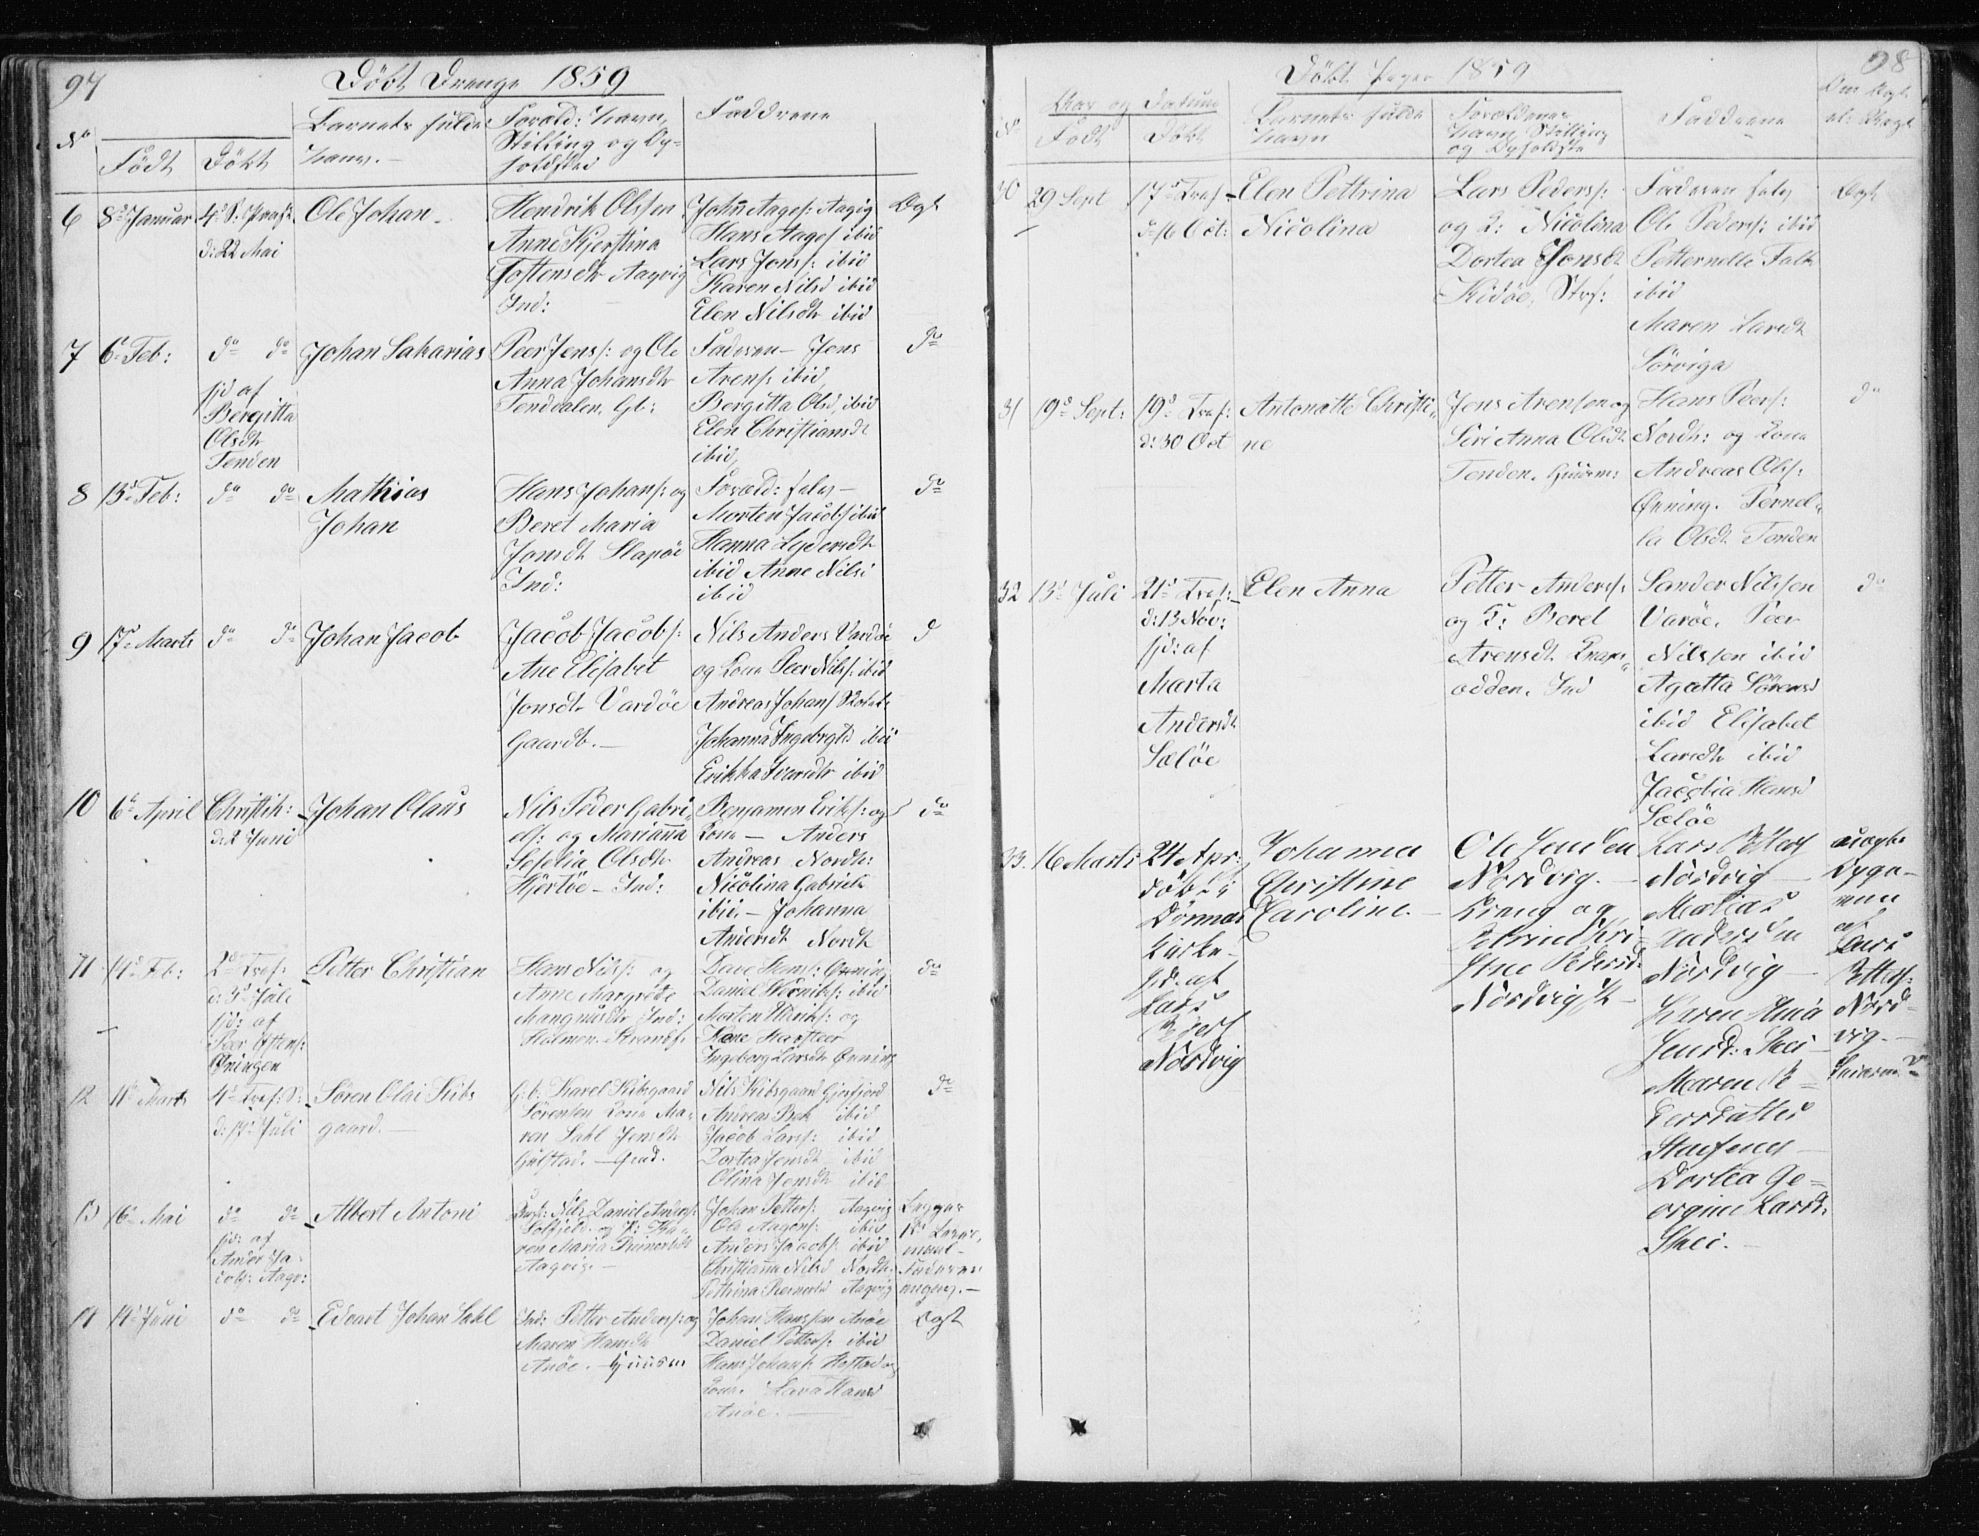 97
Döbt Drenge 1859
No
Födt
Döbt
Barnets fulde
Navn.
Foræld: Navn,
Stilling og Op-
holdsted
Faddrene
6
8de Januar
4de S: 
d: 22 Mai
Ole Johan
Hendrik Olssen
Anne Kjerstina
Tostensdtr Aagvig
Ind:
Johan Aages: Aagvig
Hans Aages ibid
Lars Jons: ibid
Karen Nilsd ibid
Elen Nilsdtr ibid
Ægt
7
6te Feb:
do do
hjd af
Bergitta
Olsdtr
Tenden
Johan Sakarias
Peer Jens: og Ole
Anna Johansdtr
Tendalen. Gb:
Faderen - Jens
Arens: ibid
Bergitta Olsd, ibid
Elen Christiansdtr
ibid,
do
8
13de Feb:
do do
Mathias
Johan
Hans Johans: og
Beret Maria
Jonsdtr Slapöe
Ind:
Foræld: selv -
Morten Jacobs ibid
Hanna Lydersdtr
ibid Anne Nilsd
ibid
do
9
17de Marts
do do
Johan Jacob
Jacob Jacobs:
Ane Elisabet
Jonsdtr Vardöe
Gaardb.
Nils Anders Vardöe
og Kone Peer Nils: ibid
Andreas Johans
Johanna Ingebrgtd ibid
Erikka Ivarsdtr ibid
d
10
6te April
Christih:
d: 2 Juni
Johan Olaus
Nils Peder Gabri,
els: og Marianna
Sofelia Olsdtr
Hjertöe - Ind:
Benjamin Eriks: og
Kone - Anders
Andreas Nordtr:
Nicolina Gabriels
ibid. - Johanna
Andersdtr Nordtr
do
11
14de Feb:
2den Tref:
d: 3de Juli
hjd: af
Peer Estens:
Önningen
Petter Christian
Hans Nils: og
Anne Margrede
Mangnusdtr Ind:
Holmen. Strands.
Dave Hans: Önning
Daniel Henriks: ibid
Morten Eldriks: og
Kone
Ingeborg Larsdtr Önning
do
12
11te Marts
4de Tref: S:
d: 17de Juli
Sören Olai Kibs
gaard.
G. b. Karel Kibsgaard
Sörensen Kone Ma,
ren Sahl Jensdtr
Gulstad. - Gaad.
Nils Kibsgaard Gjerfjord
Andreas Bak ibid
Jacob Lars: ibid
Dortea Jensdtr ibid
Olina Jensdtr ibid
do
13
16de Mai
do do
hjd: af
Anders Ja-
cobs: Aagv:
Albert Antoni
Nils Daniel Anders:
Solfjeld. og P: Ka-
ren Maria Reinertsdtr
Aagvig. -
Johan Petters: Aagvig
Ole Aagens: ibid
Anders Jacobs: ibid
Christianna Nilsd Nordtr
Pettrina Reinertsd Aagvig
Begges
1ste Leier,
maal -
Faderen
14
14de Juni
do do
Edvart Johan Sahl
Ind: Petter Anders: og
Maren Hansdtr
Anöe. - Huusm
Johan Hanssen Anöe
Daniel Petters: ibid
Hans Johans: Hofstad og
Kone. Lava Hansd
Anöe.
Ægt
98
Döbt Piger 1859
No
Aar og Datum
Födt
Döbt
Barnets fulde
Navn
Forældrenes
Navn Stilling
og Opholdste
Faddrene
Om Ægt
el: Uægt
30
29 Sept
17de Tref -
d: 16 Oct:
Elen Pettrina
Nicolina
Lars Peders:
og 2: Nicolina
Dortea Jonsdtr
Kidöe. Strs:
Faderen selv
Ole Peders: ibid
Petternelle Falk
ibid
Maren Larsdtr
Sörviga
Ægt
31
19de Sept:
19de Tref:
d: 30 Oct
Antonatte Christi,
ne
Jens Arensen og
Siri Anna Olsdtr
Tenden. Huusm:
Hans Peers:
Nordtr: og Kone
Andreas Ols:
Önning. Pernel-
la Olsdtr Tenden
do
32
13de Juli
21de Tref:
d: 13 Nov:
hjd: af
Marta
Andersdtr
Sælöe
Elen Anna
Petter Anders:
og P: Beret
Arensdtr
odden. Ind
Sander Nilssen
Varöe. Peer
Nilssen ibid
Agatta Sörensd
ibid Elisabet
Larsdtr ibid
Jacobia Hansd
Sælöe
do
33
16 Marts
24 Apr:
döbt i
Dönnes
Kirke -
hjd: af
Lars
Petters
Nordvig
Johanna
Christine
Caroline. -
Ole Jensen
Nordvig. -
og
Petrine Kri-
stine Pedersd:
Nordvig
Lars Petters
Nordvig
Matias
Andersen
Nordvig -
Karen Anna
Jensd: Skei -
Maren Pe-
dersdatter
Dortea Ge-
orgine Larsd:
Skei. -
uægte
af
Lars
Petters:
Nord-
vig. -